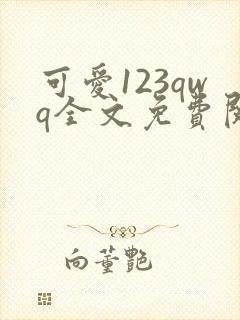 可愛123qw
q全文免費閱
向董艷